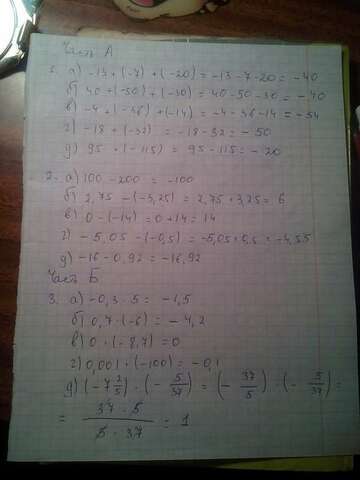 Часть А
1. а) -13 + (-7) + (-20) = -13 - 7 - 20 = -40
б) 40 + (-50) + (-30) = 40 - 50 - 30 = -40
в) -4 + (-36) + (-14) = -4 - 36 - 14 = -54
г) -18 + (-32) = -18 - 32 = -50
д) 95 + (-115) = 95 - 115 = -20
2. а) 100 - 200 = -100
б) 2,75 - (-3,25) = 2,75 + 3,25 = 6
в) 0 - (-14) = 0 + 14 = 14
г) -5,05 - (-0,5) = -5,05 + 0,5 = -4,55
д) -16 - 0,92 = -16,92
Часть Б
3. а) -0,3 · 5 = -1,5
б) 0,7 · (-6) = -4,2
в) 0 · (-8,7) = 0
г) 0,001 · (-100) = -0,1
д) (-7 2/5) · (- 5/37) = (- 37/5) · (- 5/37) =
= 37 · 5 / 5 · 37 = 1